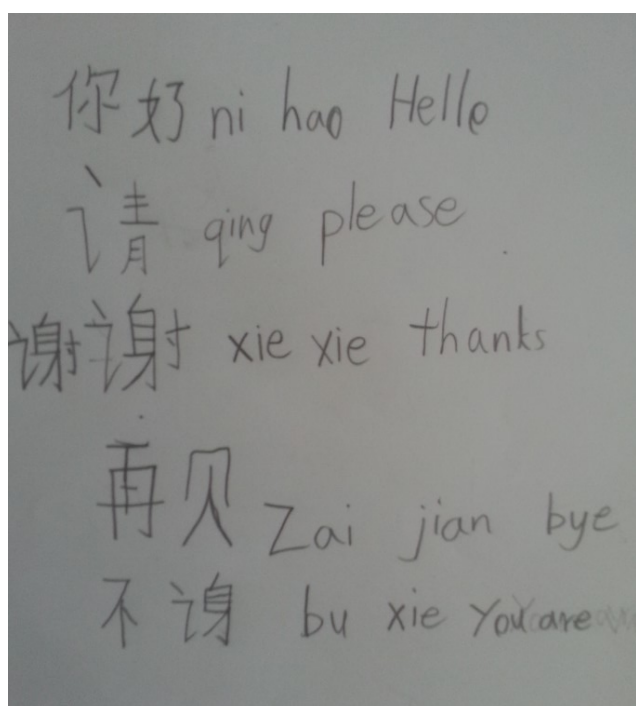 你好 ni hao Hello
请 qing please
谢谢 xie xie thanks
再见 Zai jian bye
不 bu xie You are